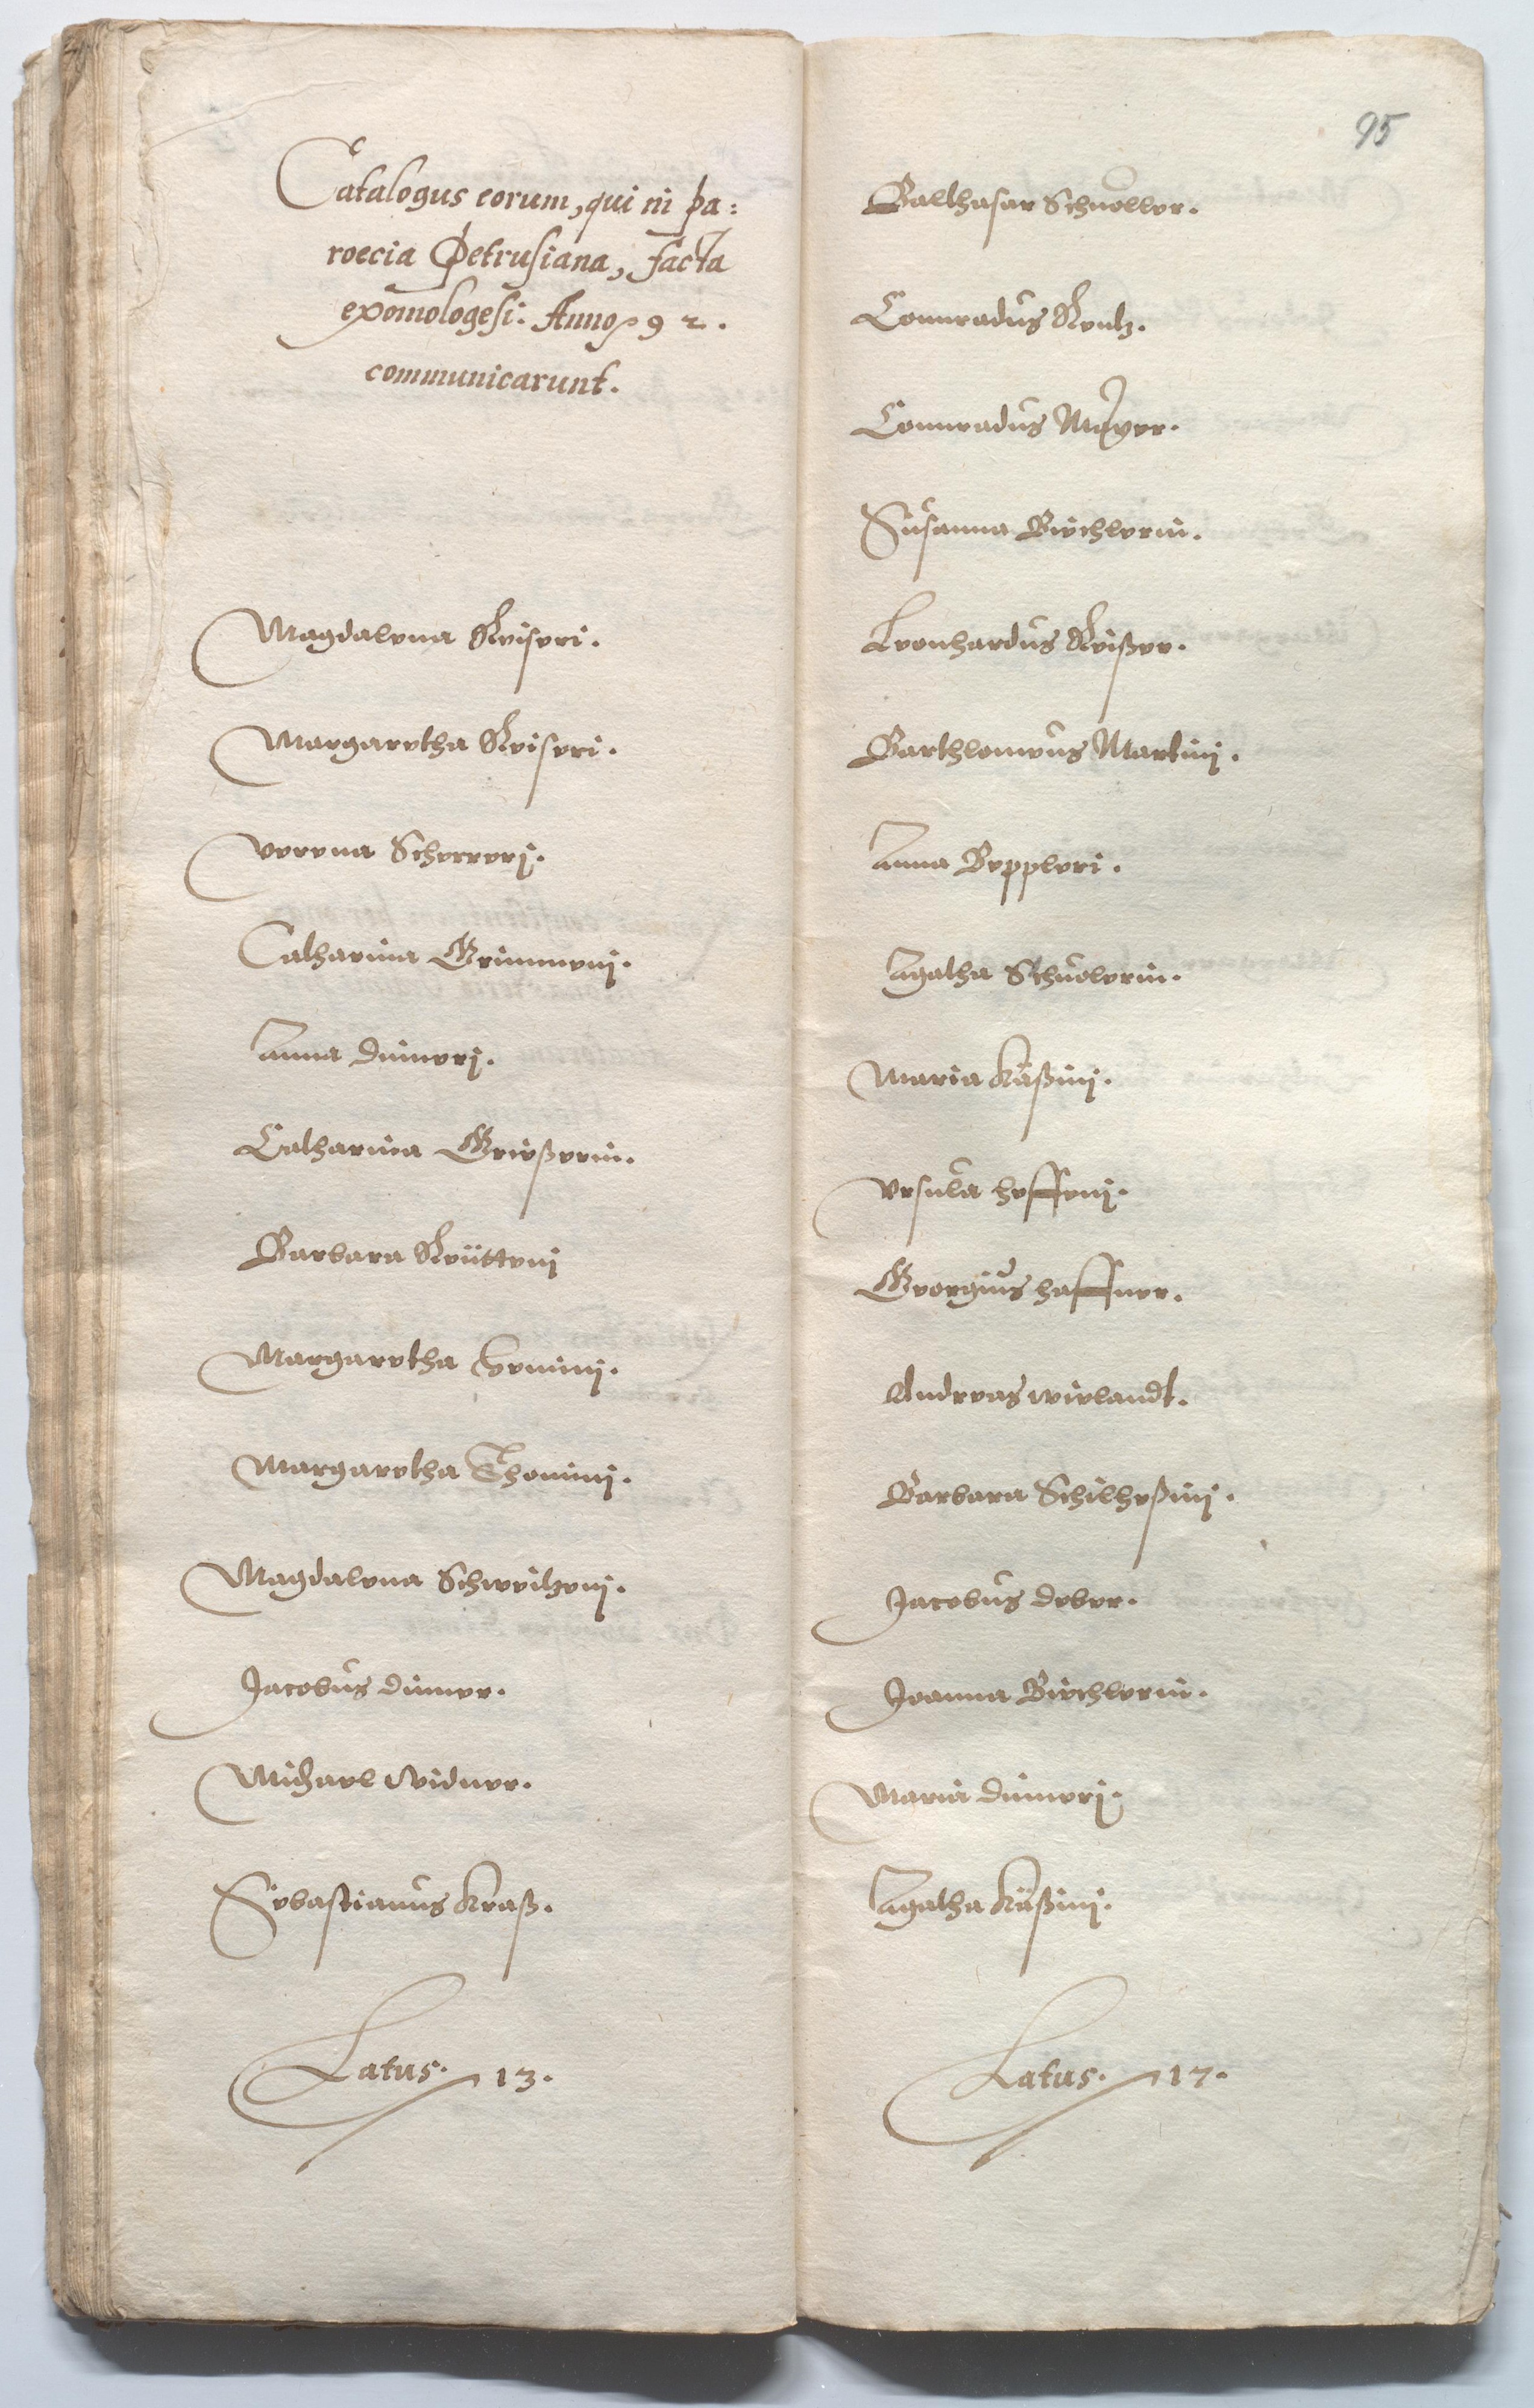 Catalogus eorum, qui in pa:
roecia Petrusiana, facta
exomologesi: Anno 92.
communicarunt.
Magdalena Keiseri.
Margaretha Keiseri.
Verena Scherrerj.
Catharina Grimmenj.
Anna Dinnerj.
Catharina Grießerin.
Barbara Reüttenj
Margaretha Hemini.
Margaretha Thominj.
Magdalena Schweitzenj.
Jacobus Dinner.
Michael Widner.
Sebastianus Kraß.
Latus. 13.
95
Balthasar Schuoller.
Connradus Rentz.
Connradus Mayer.
Susanna Biechlerin.
Leonhardus Keißer.
Barthlomeus Martinj.
Anna Beppleri.
Agatha Schuolerin.
Maria Käßinj.
Vrsula Heffenj.
Georgius Haffner.
Andreas Wielandt.
Barbara Schilheßinj.
Jacobus Deber.
Joanna Biechlerin.
Maria Dinnerj.
Agatha Käßinj.
Latus. 17.